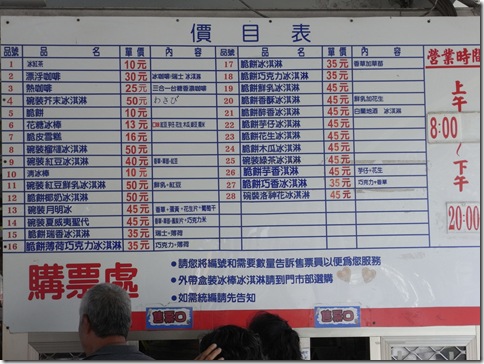 價目表
品號 品名 單價 內容
1 冰紅茶 10元
2 漂浮咖啡 30元 冰咖啡+瑞士冰淇淋
3 熱咖啡 25元 三合一台糖香濃咖啡
4 碗裝芥末冰淇淋 50元 わさび
5 脆餅 10元
6 花糖冰棒 13元
7 脆皮雪糕 16元
8 碗裝 冰淇淋 50元
9 碗裝紅豆冰淇淋 40元
10 清冰棒 10元
11 碗裝紅豆鮮乳冰淇淋 50元 鮮乳+紅豆
12 脆餅椰奶冰淇淋 50元
13 碗裝月明冰 45元
14 碗裝夏威夷聖代 45元
15 脆餅瑞香冰淇淋 35元 瑞士+薄荷
16 脆餅薄荷巧克力冰淇淋 35元
品號 品名 單價 內容
17 脆餅冰淇淋 35元 香草加草莓
18 脆餅巧克力冰淇淋 35元
19 脆餅鮮乳冰淇淋 45元
20 脆餅香酥冰淇淋 45元 鮮乳加花生
21 脆餅醉香冰淇淋 45元 白蘭地酒 冰淇淋
22 脆餅芋仔冰淇淋 45元
23 脆餅花生冰淇淋 45元
24 脆餅木瓜冰淇淋 45元
25 碗裝綠茶冰淇淋 45元
26 脆餅芋香冰淇淋 45元 芋仔+花生
27 脆餅巧香冰淇淋 35元 巧克力+香草
28 碗裝洛神花冰淇淋 45元
營業時間
上午
8:00
下午
20:00
購票處
●請您將編號和需要數量告訴售票員以便為您服務
●外帶盒裝冰棒冰淇淋請到門市部選購
●如需統編請先告知
售票口
售票口